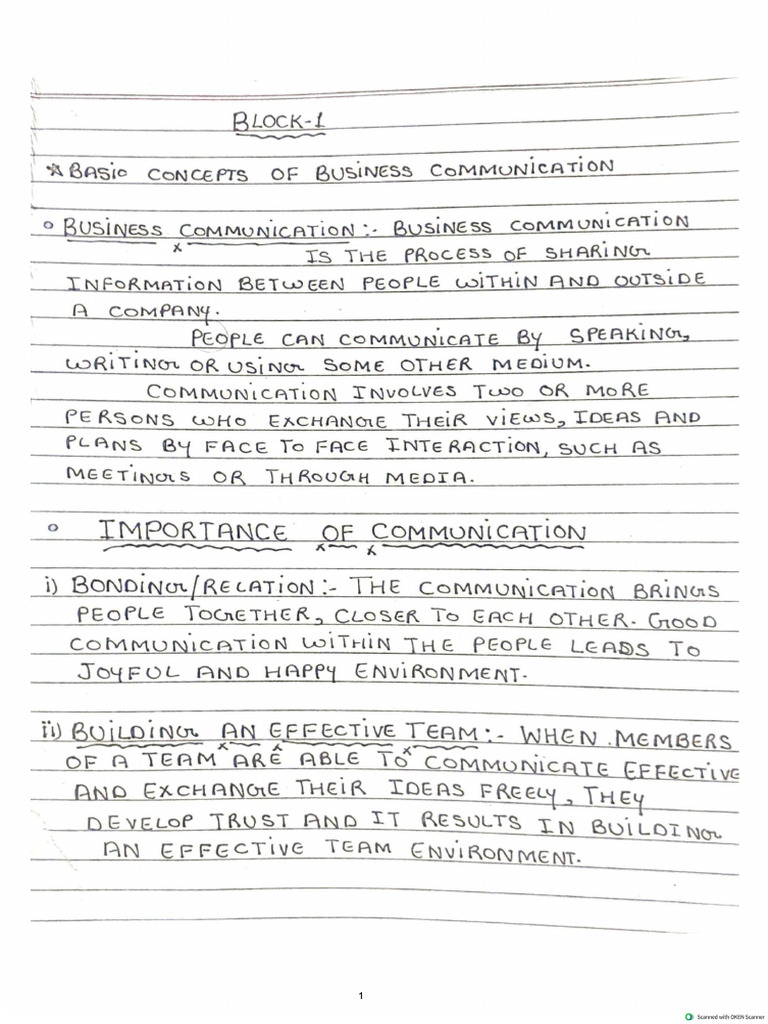 BLOCK-1
☆ BASIC CONCEPTS OF BUSINESS COMMUNICATION
○ BUSINESS COMMUNICATION:- BUSINESS COMMUNICATION
IS THE PROCESS OF SHARING
INFORMATION BETWEEN PEOPLE WITHIN AND OUTSIDE
A COMPANY.
PEOPLE CAN COMMUNICATE BY SPEAKING,
WRITING OR USING SOME OTHER MEDIUM.
COMMUNICATION INVOLVES TWO OR MORE
PERSONS WHO EXCHANGE THEIR VIEWS, IDEAS AND
PLANS BY FACE TO FACE INTERACTION, SUCH AS
MEETINGS OR THROUGH MEDIA.
○ IMPORTANCE OF COMMUNICATION
i) BONDING/RELATION:- THE COMMUNICATION BRINGS
PEOPLE TOGETHER, CLOSER TO EACH OTHER. GOOD
COMMUNICATION WITHIN THE PEOPLE LEADS TO
JOYFUL AND HAPPY ENVIRONMENT.
ii) BUILDING AN EFFECTIVE TEAM:- WHEN MEMBERS
OF A TEAM ARE ABLE TO COMMUNICATE EFFECTIVE
AND EXCHANGE THEIR IDEAS FREELY, THEY
DEVELOP TRUST AND IT RESULTS IN BUILDING
AN EFFECTIVE TEAM ENVIRONMENT.
1
Scanned with OKEN Scanner